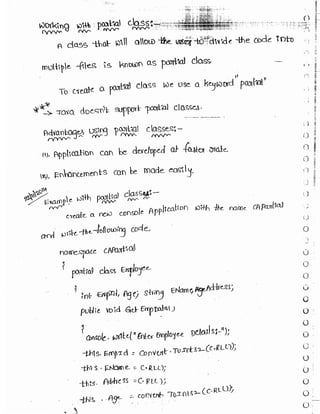 Working with partial class:-
A class that will allow the user to divide the code into
multiple files is known as partial class
To create a partial class we use a keyword "partial"
*** → Java doesn't support partial classes.
Advantages using partial classes:-
(i). Application can be developed at faster rate.
(ii). Enhancements can be made easily.
Example with partial classes:-
create a new console Application with the name CAPartial
and write the following code.
namespace CAPartial
{
partial class Employee
{
int EmpId, Age; string EName, Address;
public void GetEmpData()
{
Console.Write("Enter Employee Details:-");
this.EmpId = Convert.ToInt32(C.RL());
this.EName = C.RLL);
this. Address = C.RLL);
this. Age = convert.ToInt32(C.RL());
}